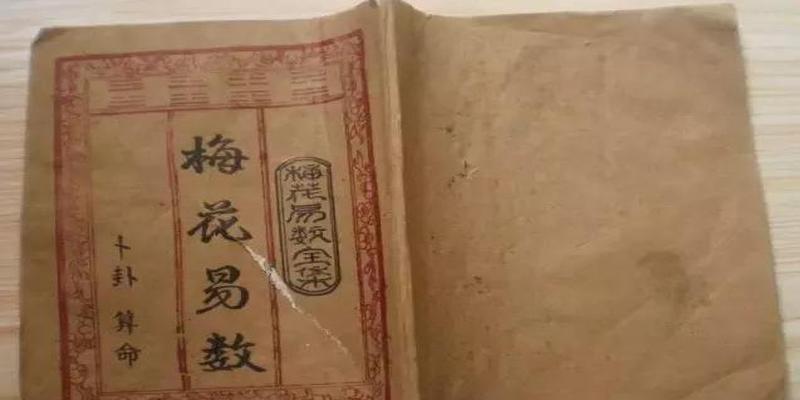 梅花易数全集
梅花易数
卜卦 算命